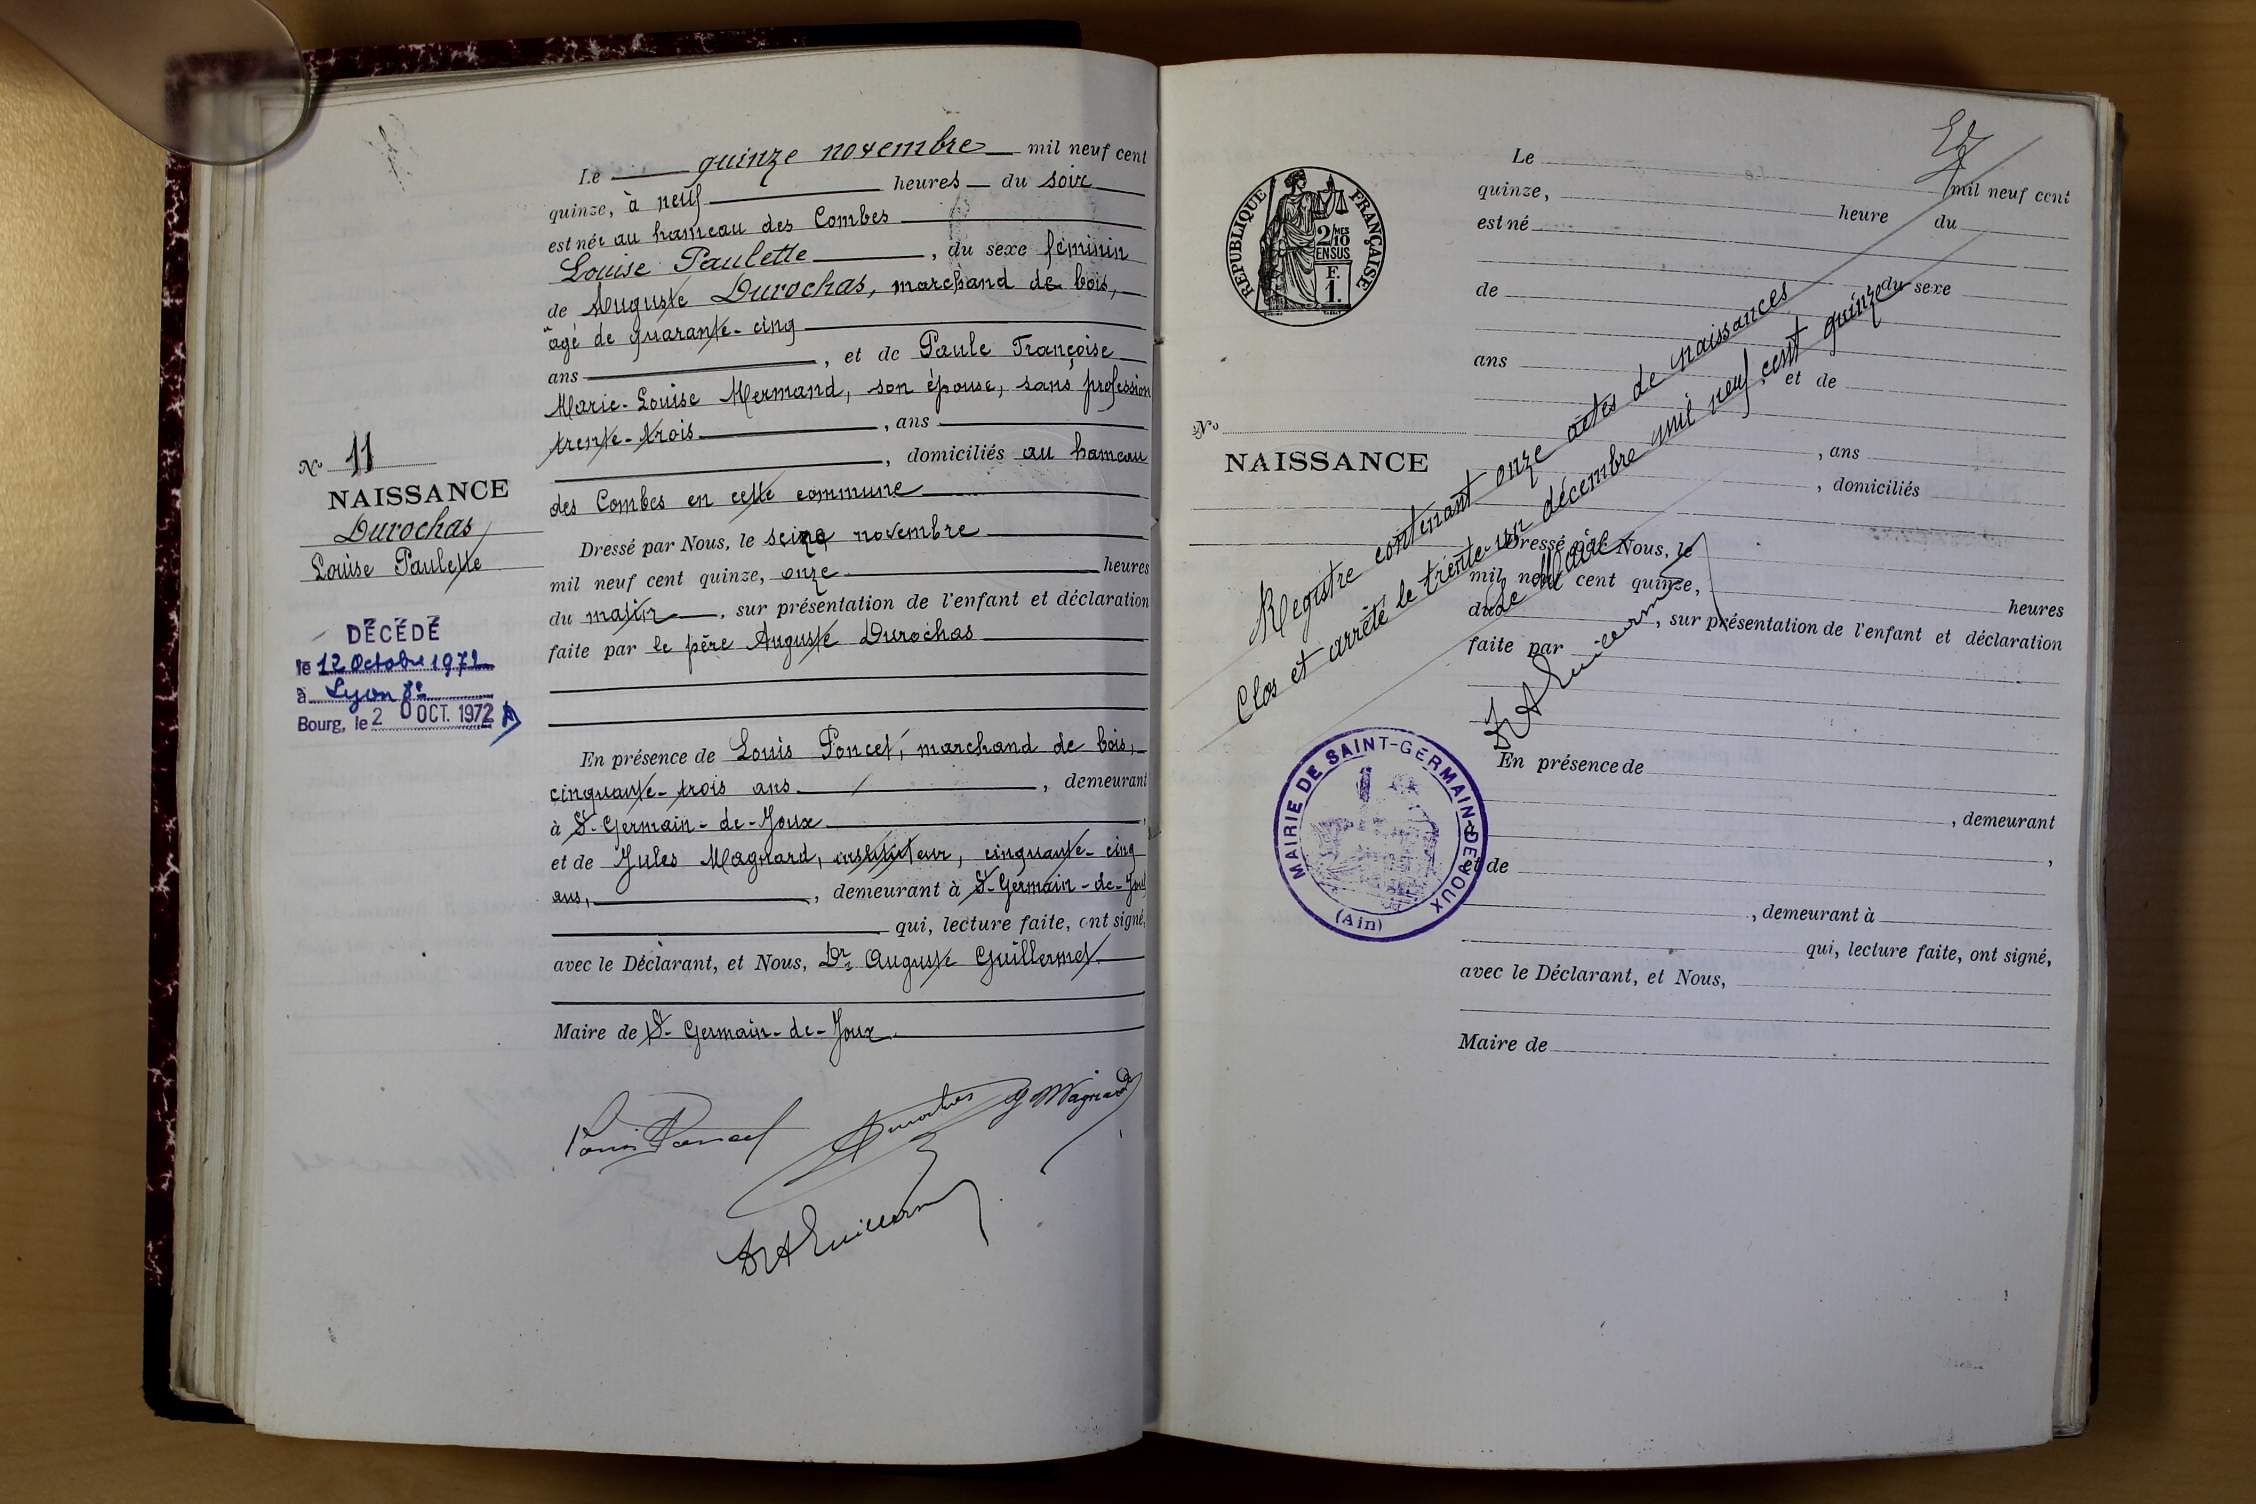 Le quinze novembre mil neuf cent
quinze, à neuf heures du soir
est née au hameau des Combes
Louise Paulette, du sexe féminin
de Auguste Durochas, marchand de bois,
âgé de quarante-cinq
ans, et de Paule Françoise
Marie-Louise Mermand, son épouse, sans profession
trente-trois, ans
, domiciliés au hameau
des Combes en cette commune
Dressé par Nous, le seize novembre
mil neuf cent quinze, onze heures
du matin, sur présentation de l'enfant et déclaration
faite par le père Auguste Durochas
En présence de Louis Poncet, marchand de bois,
cinquante-trois ans, demeurant
à St-Germain-de-Joux
et de Jules Magnard, instituteur, cinquante-cinq
ans, demeurant à St-Germain-de-Joux
qui, lecture faite, ont signé,
avec le Déclarant, et Nous, Dr Auguste Guillermet
Maire de St-Germain-de-Joux
Louis Poncet
Durochas
J Magnard
Dr A Guillermet
No 11
NAISSANCE
Durochas
Louise Paulette
DÉCÉDÉ
le 12 Octobre 1972
à Lyon 8e
Bourg, le 2 0 OCT. 1972
RÉPUBLIQUE FRANÇAISE
2/10 MES
EN SUS
F.
1.
No
NAISSANCE
Le mil neuf cent
quinze, heure du
est né
du sexe
de
ans
et de
, ans
, domiciliés
Dressé par Nous, le
mil neuf cent quinze, heures
du, sur présentation de l'enfant et déclaration
faite par
En présence de
, demeurant
,
et de
, demeurant à
qui, lecture faite, ont signé,
avec le Déclarant, et Nous,
Maire de
Registre contenant onze actes de naissances
Clos et arrêté le trente-un décembre mil neuf cent quinze
Le Maire
Dr A Guillermet
MAIRIE DE SAINT-GERMAIN-DE-JOUX
(Ain)